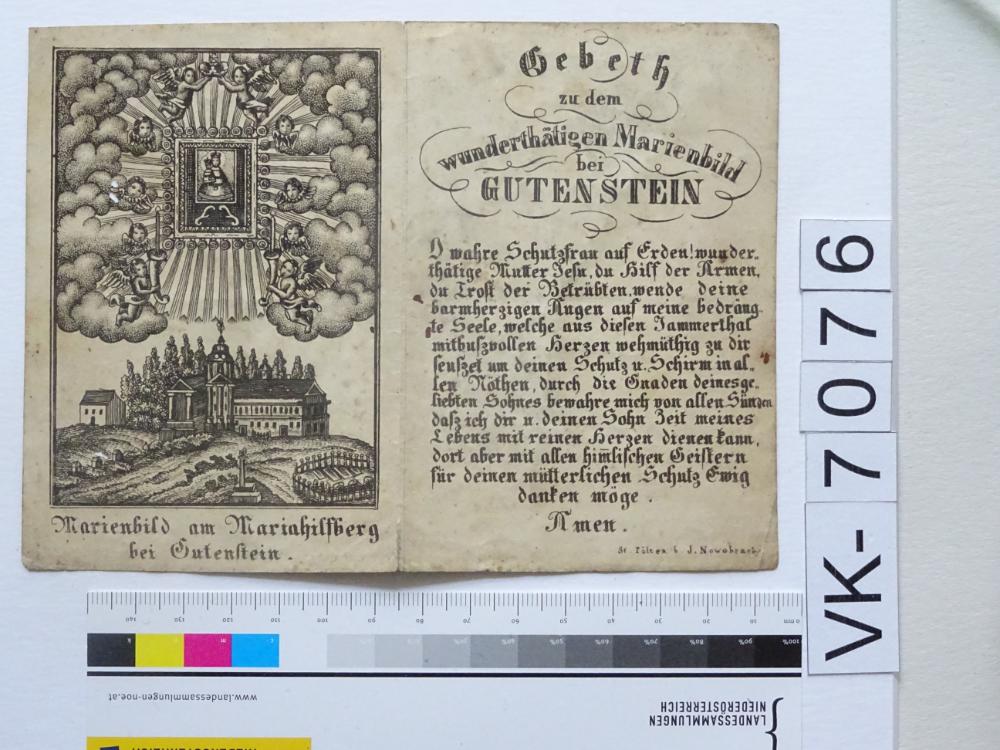 Marienbild am Mariahilfberg
bei Gutenstein.
Gebeth
zu dem
wunderthätigen Marienbild
bei
GUTENSTEIN
O wahre Schutzfrau auf Erden! wunder-
thätige Mutter Jesu, du Hilf der Armen,
du Trost der Betrübten, wende deine
barmherzigen Augen auf meine bedräng-
te Seele, welche aus diesen Jammerthal
mitbuszvollen Herzen wehmüthig zu dir
seufzet um deinen Schutz u. Schirm in al-
len Nöthen, durch die Gnaden deines ge-
liebten Sohnes bewahre mich von allen Sünden
daß ich dir u. deinen Sohn Zeit meines
Lebens mit reinen Herzen dienen kann,
dort aber mit allen himlischen Geistern
für deinen mütterlichen Schutz Ewig
danken möge.
Amen.
St. Pölten b. J. Nowohradsky
VK-7076
0 mm 10 20 30 40 50 60 70 80 90 100 110 120 130 140
100% 90% 80% 70% 60% 50% 40% 30% 20% 10% c m y k
www.landessammlungen-noe.at
LANDESSAMMLUNGEN
NIEDERÖSTERREICH